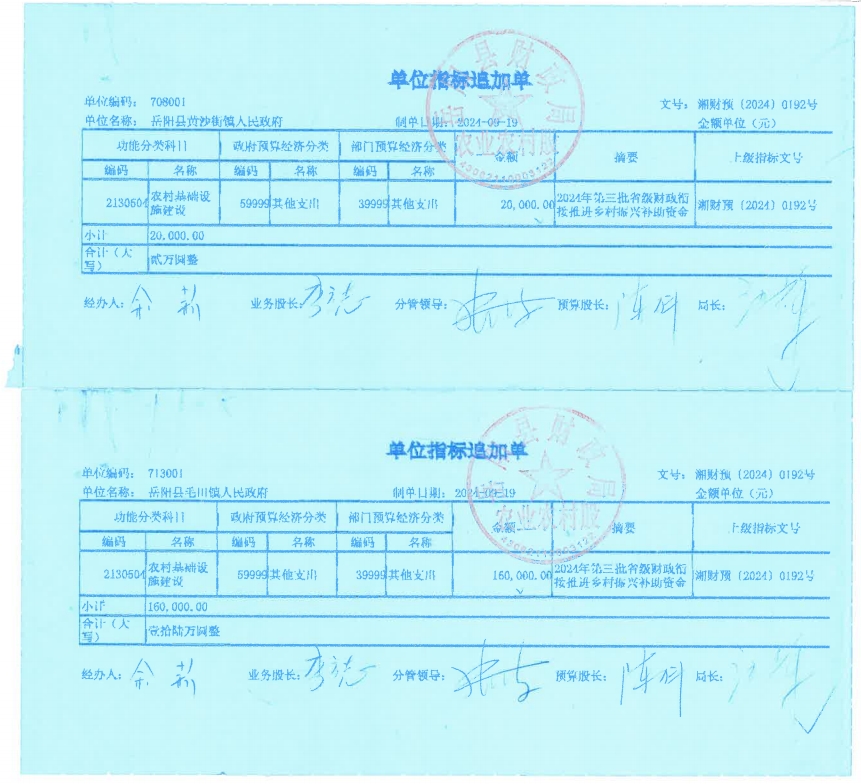 单位指标追加单
单位编码: 708001 文号: 湘财预〔2024〕0192号
单位名称: 岳阳县黄沙街镇人民政府 制单日期: 2024-09-19 金额单位（元）
功能分类科目 政府预算经济分类 部门预算经济分类 金额 摘要 上级指标文号
编码 名称 编码 名称 编码 名称
2130504 农村基础设施建设 59999 其他支出 39999 其他支出 20,000.00 2024年第三批省级财政衔接推进乡村振兴补助资金 湘财预〔2024〕0192号
小计 20,000.00
合计（大写） 贰万圆整
经办人: 业务股长: 分管领导: 预算股长: 局长:
县财政局
农业农村股
单位指标追加单
单位编码: 713001 文号: 湘财预〔2024〕0192号
单位名称: 岳阳县毛田镇人民政府 制单日期: 2024-09-19 金额单位（元）
功能分类科目 政府预算经济分类 部门预算经济分类 金额 摘要 上级指标文号
编码 名称 编码 名称 编码 名称
2130504 农村基础设施建设 59999 其他支出 39999 其他支出 160,000.00 2024年第三批省级财政衔接推进乡村振兴补助资金 湘财预〔2024〕0192号
小计 160,000.00
合计（大写） 壹拾陆万圆整
经办人: 业务股长: 分管领导: 预算股长: 局长:
县财政局
农业农村股